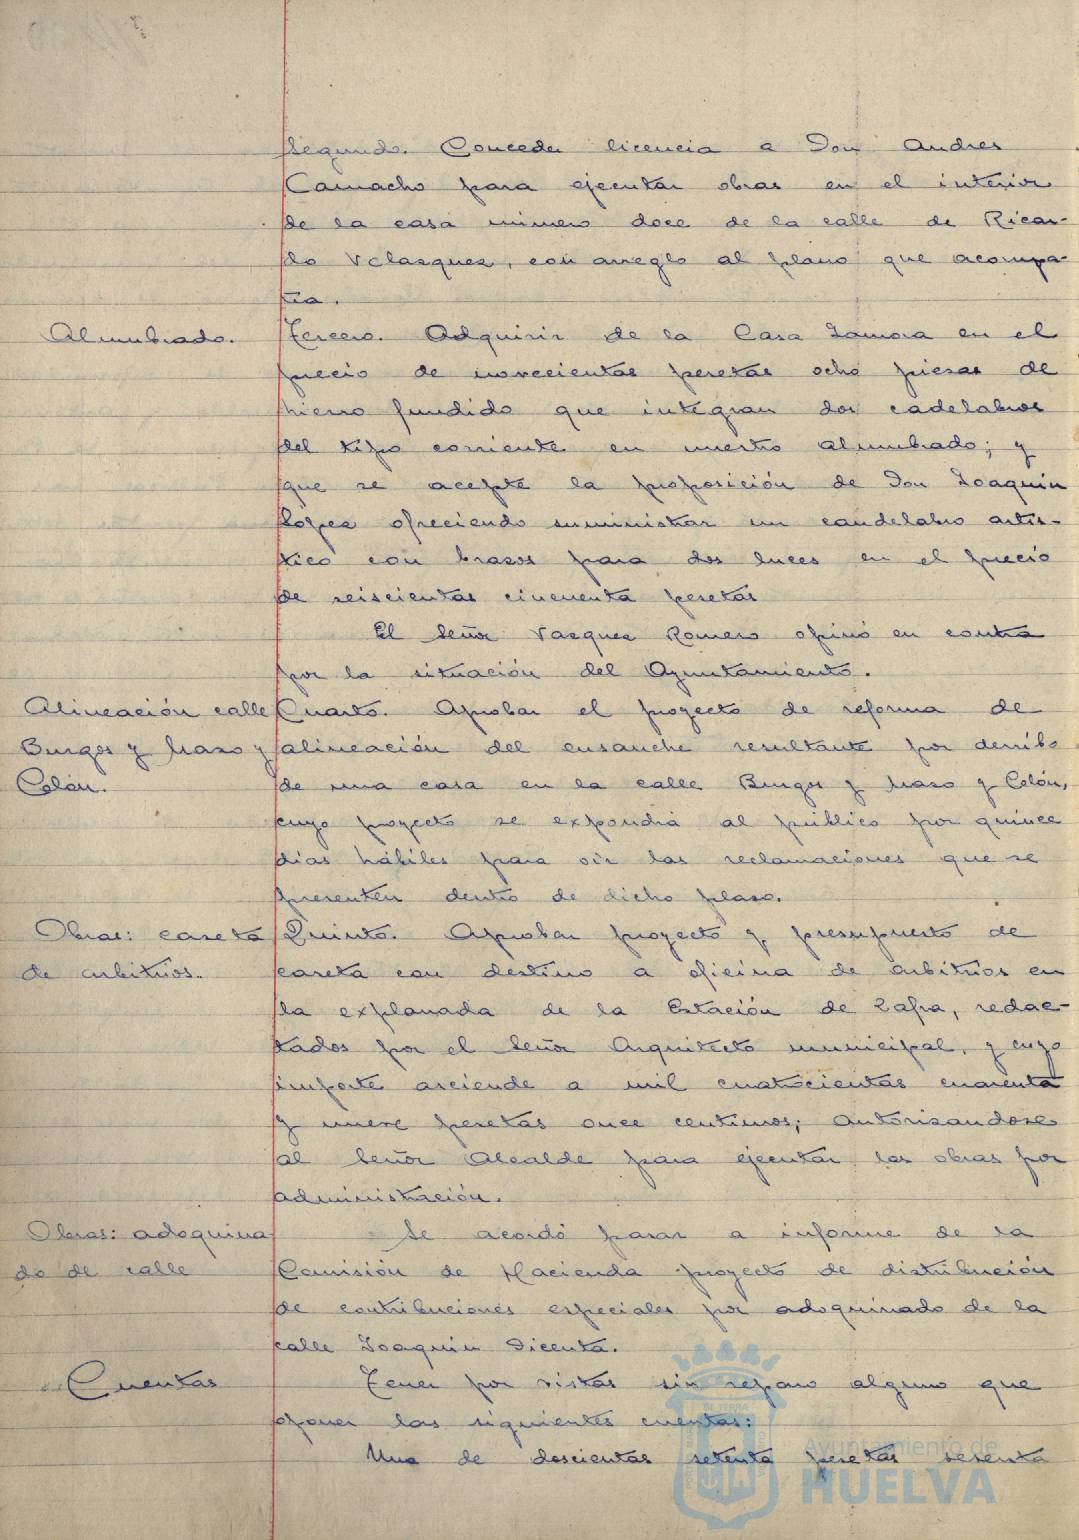 Segundo. Conceder licencia a Don Andres
Camacho para ejecutar obras en el interior
de la casa número doce de la calle de Ricar-
do Velazquez, con arreglo al plano que acompa-
ña.
Alumbrado.
Tercero. Adquirir de la Casa Zamora en el
precio de novecientas pesetas ocho piezas de
hierro fundido que integran dos cadelabros
del tipo corriente en nuestro alumbrado; y
que se acepte la proposición de Don Joaquin
López ofreciendo suministrar un candelabro artís-
tico con brazos para dos luces en el precio
de seiscientas cincuenta pesetas
El Señor Vazquez Romero opinó en contra
por la situación del Ayuntamiento.
Alineación calle
Burgos y Mazo y
Colón.
Cuarto. Aprobar el proyecto de reforma de
alineación del ensanche resultante por derribo
de una casa en la calle Burgos y Mazo y Colón,
cuyo proyecto se expondrá al público por quince
días hábiles para oir las reclamaciones que se
presenten dentro de dicho plazo.
Obras: caseta
de arbitrios.
Quinto. Aprobar proyecto y presupuesto de
caseta con destino a oficina de arbitrios en
la explanada de la Estación de Zafra, redac-
tados por el Señor Arquitecto municipal, y cuyo
importe asciende a mil cuatrocientas cuarenta
y nueve pesetas once centimos; autorizandose
al Señor Alcalde para ejecutar las obras por
administración.
Obras: adoquina
do de calle
Se acordó pasar a informe de la
Comisión de Hacienda proyecto de distribución
de contribuciones especiales por adoquinado de la
calle Joaquin Dicenta.
Cuentas
Tener por vistas sin reparo alguno que
oponer las siguientes cuentas:
Una de doscientas setenta pesetas sesenta
Ayuntamiento de
HUELVA